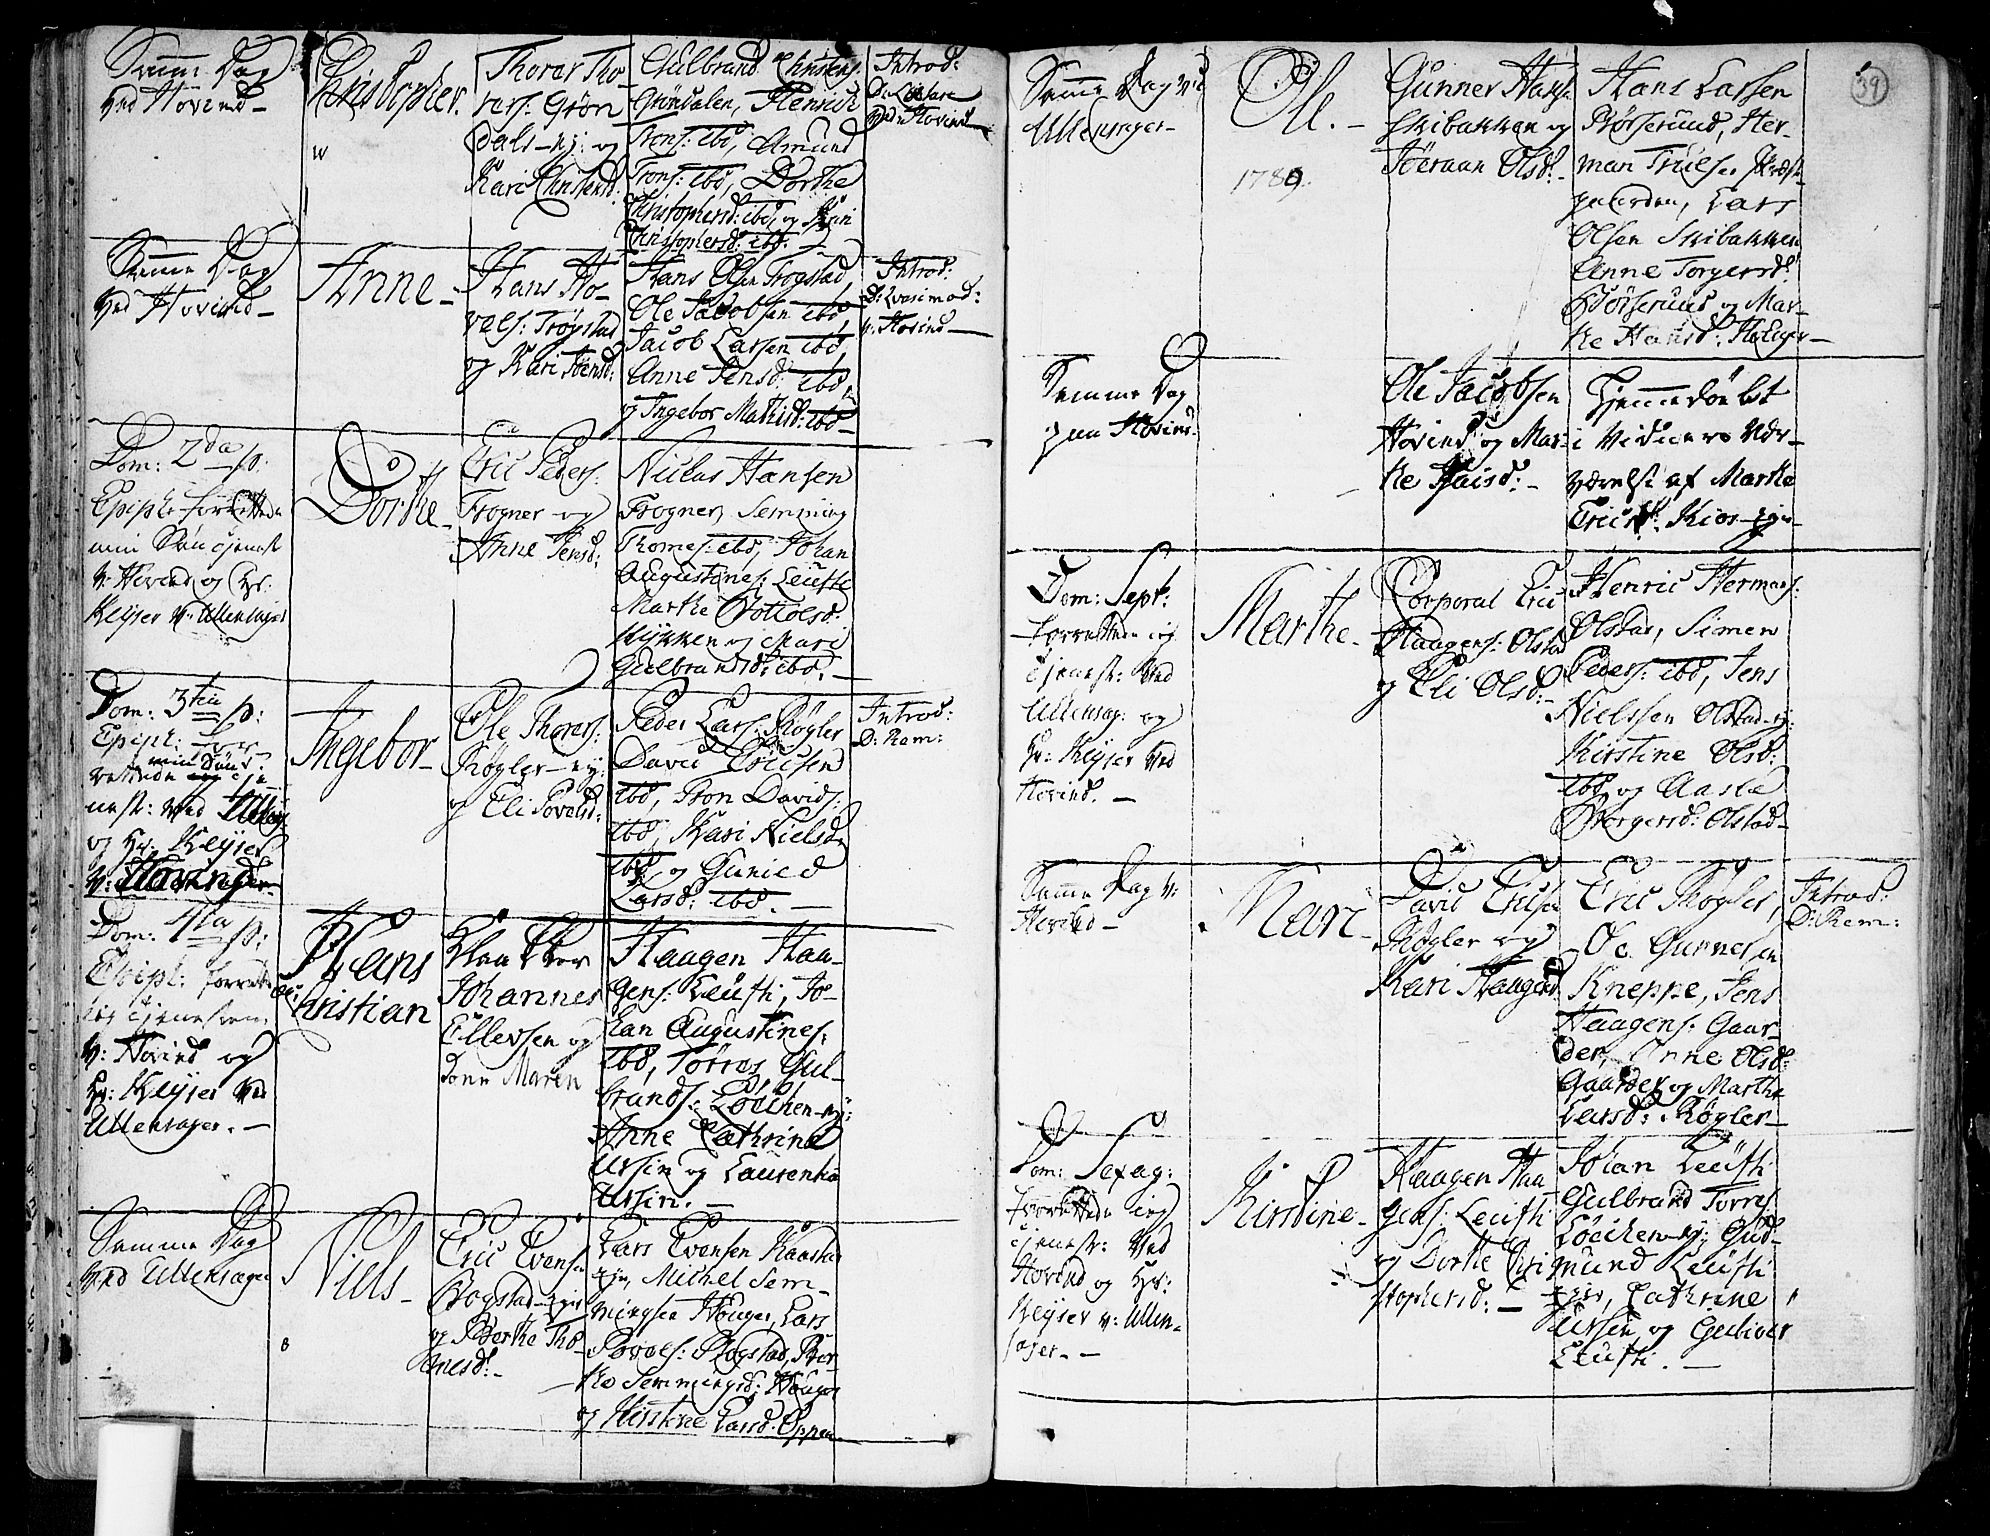 Samme Dag
ved Hovind
Christopher.
Thorer Tho-
rers: Grøn
dals-ej: og
Kari Christensd:
Gulbrand Christens:
Grøndalen, Henrich
Trons: ibd, Amund
Trons: ibd, Dorthe
Christophersd: ibd, og
Christophersd: ibd.
Introd:
ved Hovind
Samme Dag
ved Hovind
Anne
Hans Ho-
vels: Trøgstad
og Kari Hansd:
Hans Olsen Trogstad,
Ole Jacobsen ibd,
Jacob Larsen ibd,
Anne Jensd: ibd,
og Ingebor Mathisd: ibd
Introd:
D: Qvasimod:
v: Hovind
Dom: 2da p:
Epiph: forrettede
min Søn Tjenest
v: Hovind og Hr:
Keyser v: Ullensager
Dorthe
Eric Peders:
Frogner og
Anne Jensd:
Niclas Hansen
Frogner, Semming
Thomes: ibd, Johan
Augustines: Leufti
Marthe
og Mari
Gulbrandsd: ibd.
Dom: 3tia p:
Epiph: for-
min Søn
rettede tje
nest: ved Ullens:
og Hr: Keyser
v: Hovind
Ingebor
Ole Thorers:
Røgler-ej:
og Eli Povelsd:
Peder Lars: Røgler
David Ericsen
ibd, Tron Davids:
ibd, Kari Nielsd:
ibd, og Gunild
Larsd: ibd.
Introd:
D: Rem:
Dom: 4ta p:
Epiph: forrette
jeg Tjenesten
v: Hovind og
Hr: Keyser ved
Ullensager.
Hans
Christian
Johannes
Ellevsen og
Kone Maren
Haagen Haa-
gens: Leufti, Jo-
han Augustines:
ibd, Torres Gul-
brands: Løchen-ej:
Anne Cathrine
Ursin og Laurentia
Ursin.
Samme Dag
ved Ullensager
Niels
Eric Evens:
Bogstad-ejer
og Berthe Tho-
mesd:
Lars Evensen Kaasta
ejer, Michel Sem-
mingsen Houger, Lars
Povels: Rogstad, Ber-
the Semmingsd: Houger
og Kirstine Larsd: Oppen
39
Samme Dag ved
Ullensager
Ole.
1789.
Gunner Hans:
Skibakken og
Jøeraan Olsd:
Hans Larsen
Børserud, Her-
man Truels:
gaarden, Lars
Olsen Skibakken
Anne Torgersd:
Børserud og Mar-
the Hansd: Houger
Samme Dag
paa Hovind
Ole Jacobsen
Hovind og Mar-
the
Hjemmedøbt
i Vidners Nær-
værelse af Marthe
Ericsd:
Dom: Sept:
forrettede jeg
Tjenest: ved
Ullensag: og
Hr: Keyser ved
Hovind.
Marthe
Corporal Eric
Haagens: Olstad
og Eli Olsd:
Henric Hermans:
Olstad, Simen
Peders: ibd, Jens
Nielssen Olstad-ej:
Kirstine Olsd:
ibd, og Aasle
Børgersd: Olstad
Samme Dag v:
Hovind
Mari
David Ericsen
Røgler og
Kari Haagensd:
Eric Røgler,
Ole Gunnersen
Kneppe, Jens
Haagens: Gaar-
der, Anne Olsd:
Gaarder og Marthe
Larsd: Røgler
Introd:
D: Rem:
Dom: Sexag:
forrettede jeg
Tjenest: ved
Hovind og Hr:
Keyser v: Ullen-
sager.
Kirstine
Haagen Haa
gens: Leufti
og Dorthe Chri
stophersd:
Johan Leufti
Gulbrand Torres:
Løchen-ej: Gud-
mund Leufti
ejer, Cathrine
Ursin og Guliver
Leufti.